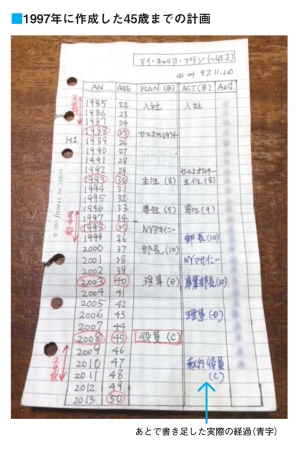 ■1997年に作成した45歳までの計画
マイ・キャリア・プラン(〜45才)
97.11.20
AN AGE PLAN (B) ACT (B)
1985 22 入社 入社
1986 23
1987 24
1988 25
H1 1989 26
1990 27
1991 28
1992 29
1993 30 主任 (8) 主任 (8)
1994 31
1995 32
1996 33 専任 (9) 専任 (9)
1997 34
1998 35 NYアサイニー
1999 36 部長 (10)
2000 37 部長 (10)
2001 38 NYアサイニー
2002 39
2003 40 理事 (D) 事業部長 (D)
2004 41
2005 42
2006 43 理事 (D)
2007 44
2008 45 役員 (C)
2009 46
2010 47 執行役員
2011 48 (C)
2012 49
2013 50
あとで書き足した実際の経過(青字)